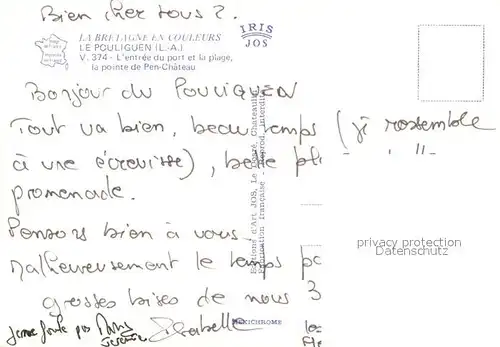 Bien chez vous ?.
IRIS
JOS
LA BRETAGNE EN COULEURS
LE POULIGUEN (L.-A.)
V. 374 - L'entrée du port et la plage,
la pointe de Pen-Château
Bonjour du POULIGUEN
Tout va bien, beau temps (je ressemble
à une écrevisse), belle pl
promenade.
Pensons bien à vous.
Malheureusement le temps pa
grosses bises de nous 3
Isabelle
Editions d'Art JOS, Le Doaré, Châteaulin
Fabrication française - Reprod. interdite
MEXICHROME
privacy protection
Datenschutz